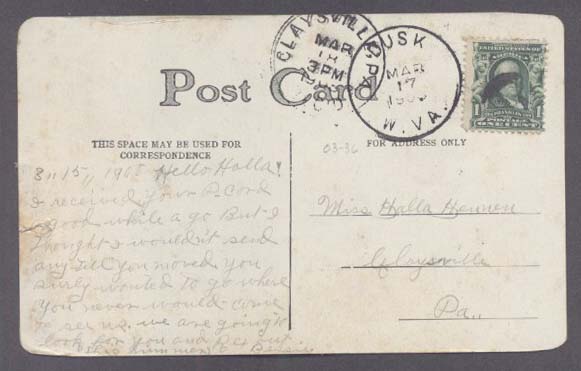 CLAYSVILLE, PA.
MAR
18
3PM
RUSK
MAR
17
W. VA.
UNITED STATES OF
POSTAGE
1 ONE CENT 1
Post Card
THIS SPACE MAY BE USED FOR
CORRESPONDENCE
FOR ADDRESS ONLY
03-36
3, 15, 1908 Hello Halla
I received your P. Card
good while ago But I
thought I wouldn't send
any till you moved you
surly wanted to go where
you never would come
to see us. we are going to
look for you and Pa out
this summer Bessie
Miss Halla Hennen
Claysville
Pa.,